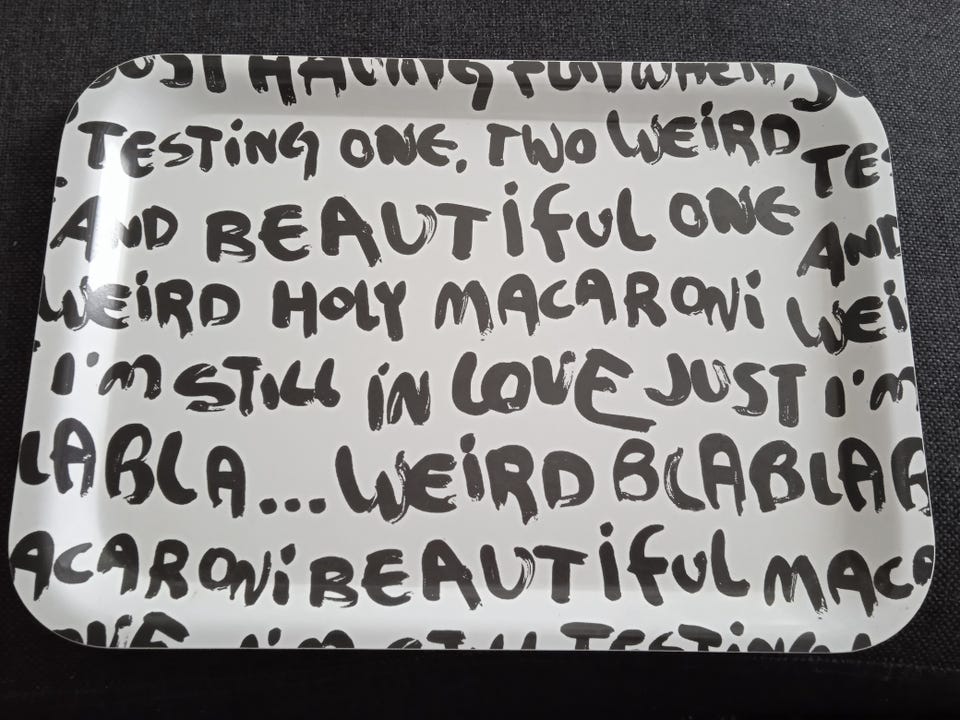 JUST HAVING FUN WHEN, J
TESTING ONE, TWO WEiRD TES
AND BEAUTiful ONE AND
WEiRD HOLY MACARONi WEi
I'm STILL iN LOVE JUST I'm
LABLA... WEiRD BLABLAB
ACARONi BEAUTiful MACA
I'm STILL TESTiNG